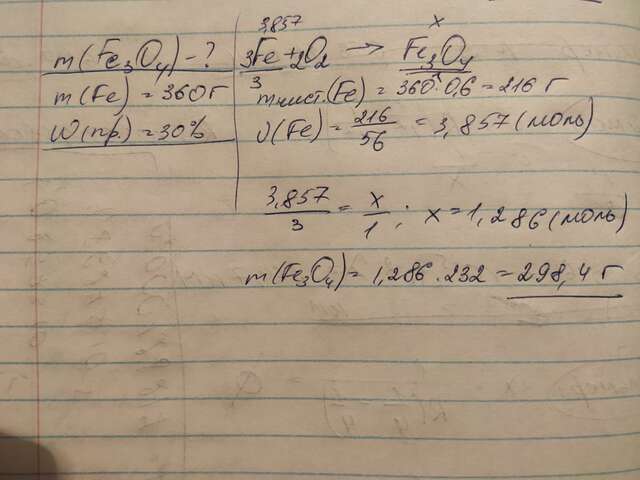 m(Fe₃O₄) - ?
m(Fe) = 360 г
ω(пр.) = 30%
3,857 x
3Fe + 2O₂ → Fe₃O₄
3 1
mчист.(Fe) = 360 · 0,6 = 216 г
ν(Fe) = 216/56 = 3,857 (моль)
3,857/3 = x/1 ; x = 1,286 (моль)
m(Fe₃O₄) = 1,286 · 232 = 298,4 г